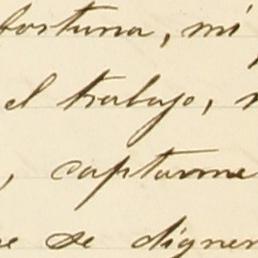 fortuna, mi
el trabajo,
, captarme
se dignen